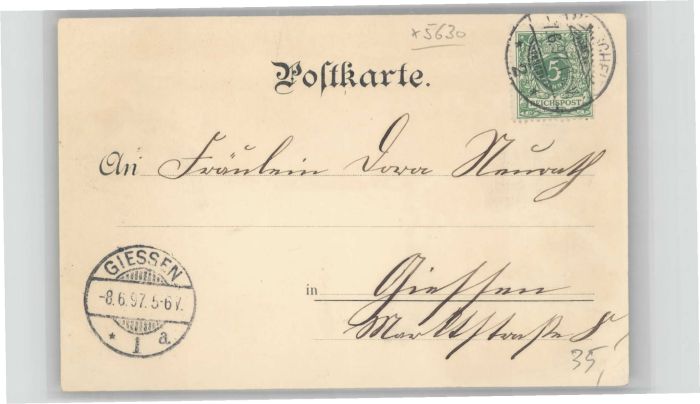 *5630
Postkarte.
5
REICHSPOST
An Fräulein Dora Neurath
in Giessen
Marktstraße 8
35,
GIESSEN
-8.6.97.5-6V.
* 1 a.